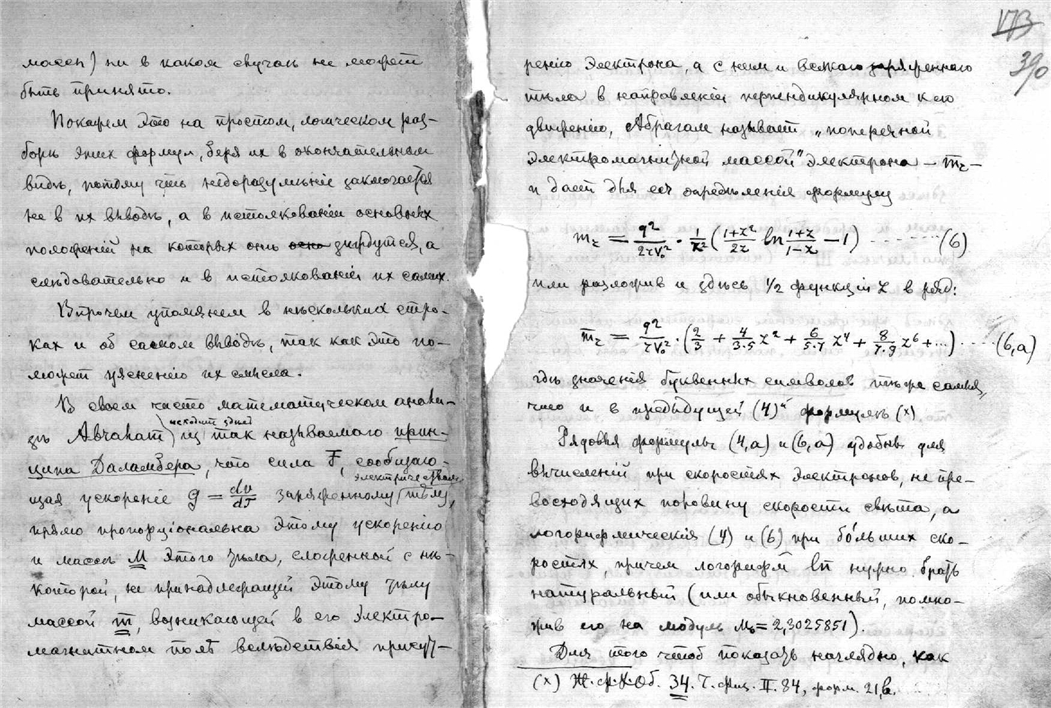 массы) ни в каком случаѣ не может
быть принято.
Покажем это на простом, логическом раз-
борѣ этих формул, беря их в окончательном
видѣ, потому что недоразумѣніе заключается
не в их выводѣ, а в истолкованіи основных
положеній на которых онѣ зиждутся, а
слѣдовательно и в истолкованіи их самих.
Впрочем упомянем в нѣскольких стро-
ках и об самом выводѣ, так как это по-
может уясненію их смысла.
В своем чисто математическом анали-
зѣ Abraham исходит здѣсь из так называемого прин-
ципа Даламбера, что сила F, сообщаю-
щая ускореніе g = dv/dT заряженному электричеством тѣлу,
прямо пропорціональна этому ускоренію
и массѣ M этого тѣла, сложенной с нѣ-
которой, не принадлежащей этому тѣлу
массой m, возникающей в его электро-
магнитном полѣ вслѣдствіе присут-
173
390
ренію электрона, а с ним и всякаго заряженнаго
тѣла в направленіи перпендикулярном к его
движенію, Абрагам называет „поперечной
электромагнитной массой" электрона — m₂ —
и дает для ея опредѣленія формулу
m₂ = q²/2rV₀² · 1/x² (1+x²/2x ln 1+x/1−x − 1) ........ (6)
или разложив и здѣсь ½ функціи x в ряд:
m₂ = q²/rV₀² · (2/3 + 4/3·5 x² + 6/5·7 x⁴ + 8/7·9 x⁶ + ...) ..... (6,a)
гдѣ значенія буквенных символов тѣ же самыя,
что и в предыдущей (4)й формулѣ (x)
Рядовыя формулы (4,a) и (6,a) удобны для
вычисленій при скоростях электронов, не пре-
восходящих половину скорости свѣта, а
логорифмическія (4) и (6) при бо́льших ско-
ростях, причем логорифм ln нужно брать
натуральный (или обыкновенный, помно-
жив его на модуль M₀ = 2,3025851).
Для того чтоб показать наглядно, как
(x) Ж. ф. Х. Об. 34. Ч. физ. II. 84, форм. 21,b.